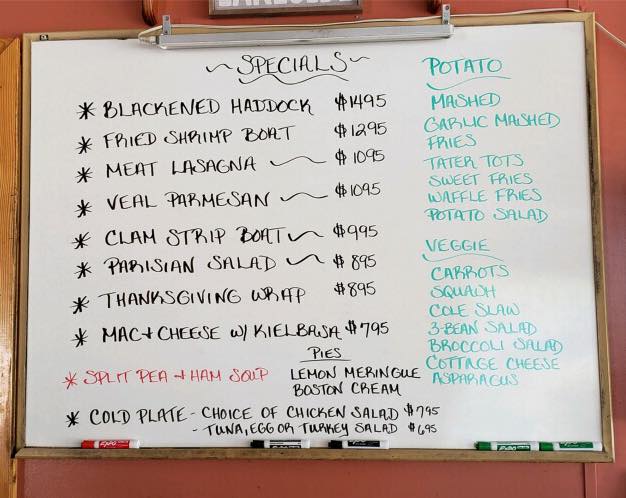 ~ SPECIALS ~
* BLACKENED HADDOCK $1495
* FRIED SHRIMP BOAT $1295
* MEAT LASAGNA $1095
* VEAL PARMESAN $1095
* CLAM STRIP BOAT $995
* PARISIAN SALAD $895
* THANKSGIVING WRAP $895
* MAC + CHEESE W/ KIELBASA $795
* SPLIT PEA + HAM SOUP
PIES
LEMON MERINGUE
BOSTON CREAM
* COLD PLATE - CHOICE OF CHICKEN SALAD $795
- TUNA, EGG OR TURKEY SALAD $695
POTATO
MASHED
GARLIC MASHED
FRIES
TATER TOTS
SWEET FRIES
WAFFLE FRIES
POTATO SALAD
VEGGIE
CARROTS
SQUASH
COLE SLAW
3-BEAN SALAD
BROCCOLI SALAD
COTTAGE CHEESE
ASPARAGUS
EXPO